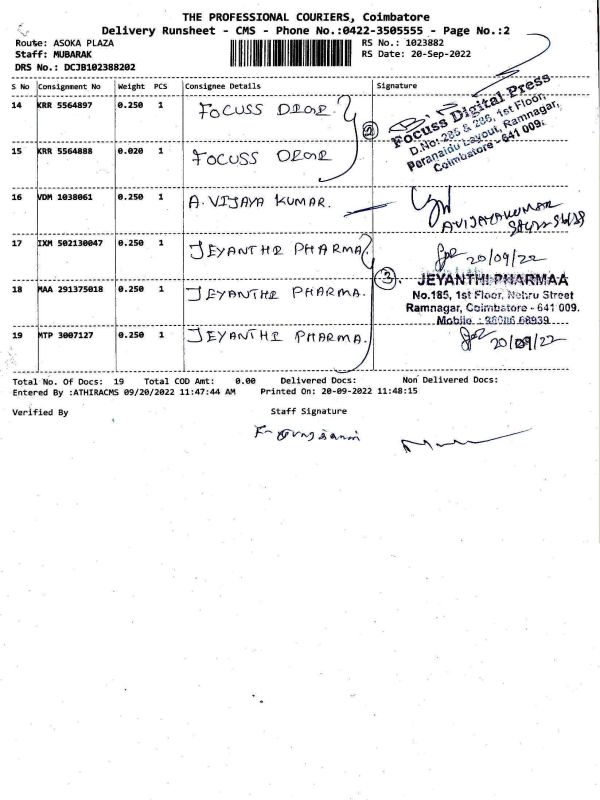 THE PROFESSIONAL COURIERS, Coimbatore
Delivery Runsheet - CMS - Phone No.:0422-3505555 - Page No.:2
Route: ASOKA PLAZA RS No.: 1023882
Staff: MUBARAK RS Date: 20-Sep-2022
DRS No.: DCJB102388202
S No Consignment No Weight PCS Consignee Details Signature
14 KRR 5564897 0.250 1 FOCUSS
Focuss Digital Press
D.No: 285 & 286, 1st Floor,
Peranaidu Layout, Ramnagar,
Coimbatore - 641 009.
15 KRR 5564888 0.020 1 FOCUSS
2
16 VDM 1038061 0.250 1 A. VIJAYA KUMAR.
A VIJAYAKUMAR
17 IXM 502130047 0.250 1 JEYANTHI PHARMA
20/09/22
18 MAA 291375018 0.250 1 JEYANTHI PHARMA.
3.
JEYANTHI PHARMAA
No.185, 1st Floor, Nehru Street
Ramnagar, Coimbatore - 641 009.
Mobile :
19 MTP 3007127 0.250 1 JEYANTHI PHARMA.
20/09/22
Total No. Of Docs: 19 Total COD Amt: 0.00 Delivered Docs: Non Delivered Docs:
Entered By :ATHIRACMS 09/20/2022 11:47:44 AM Printed On: 20-09-2022 11:48:15
Verified By Staff Signature